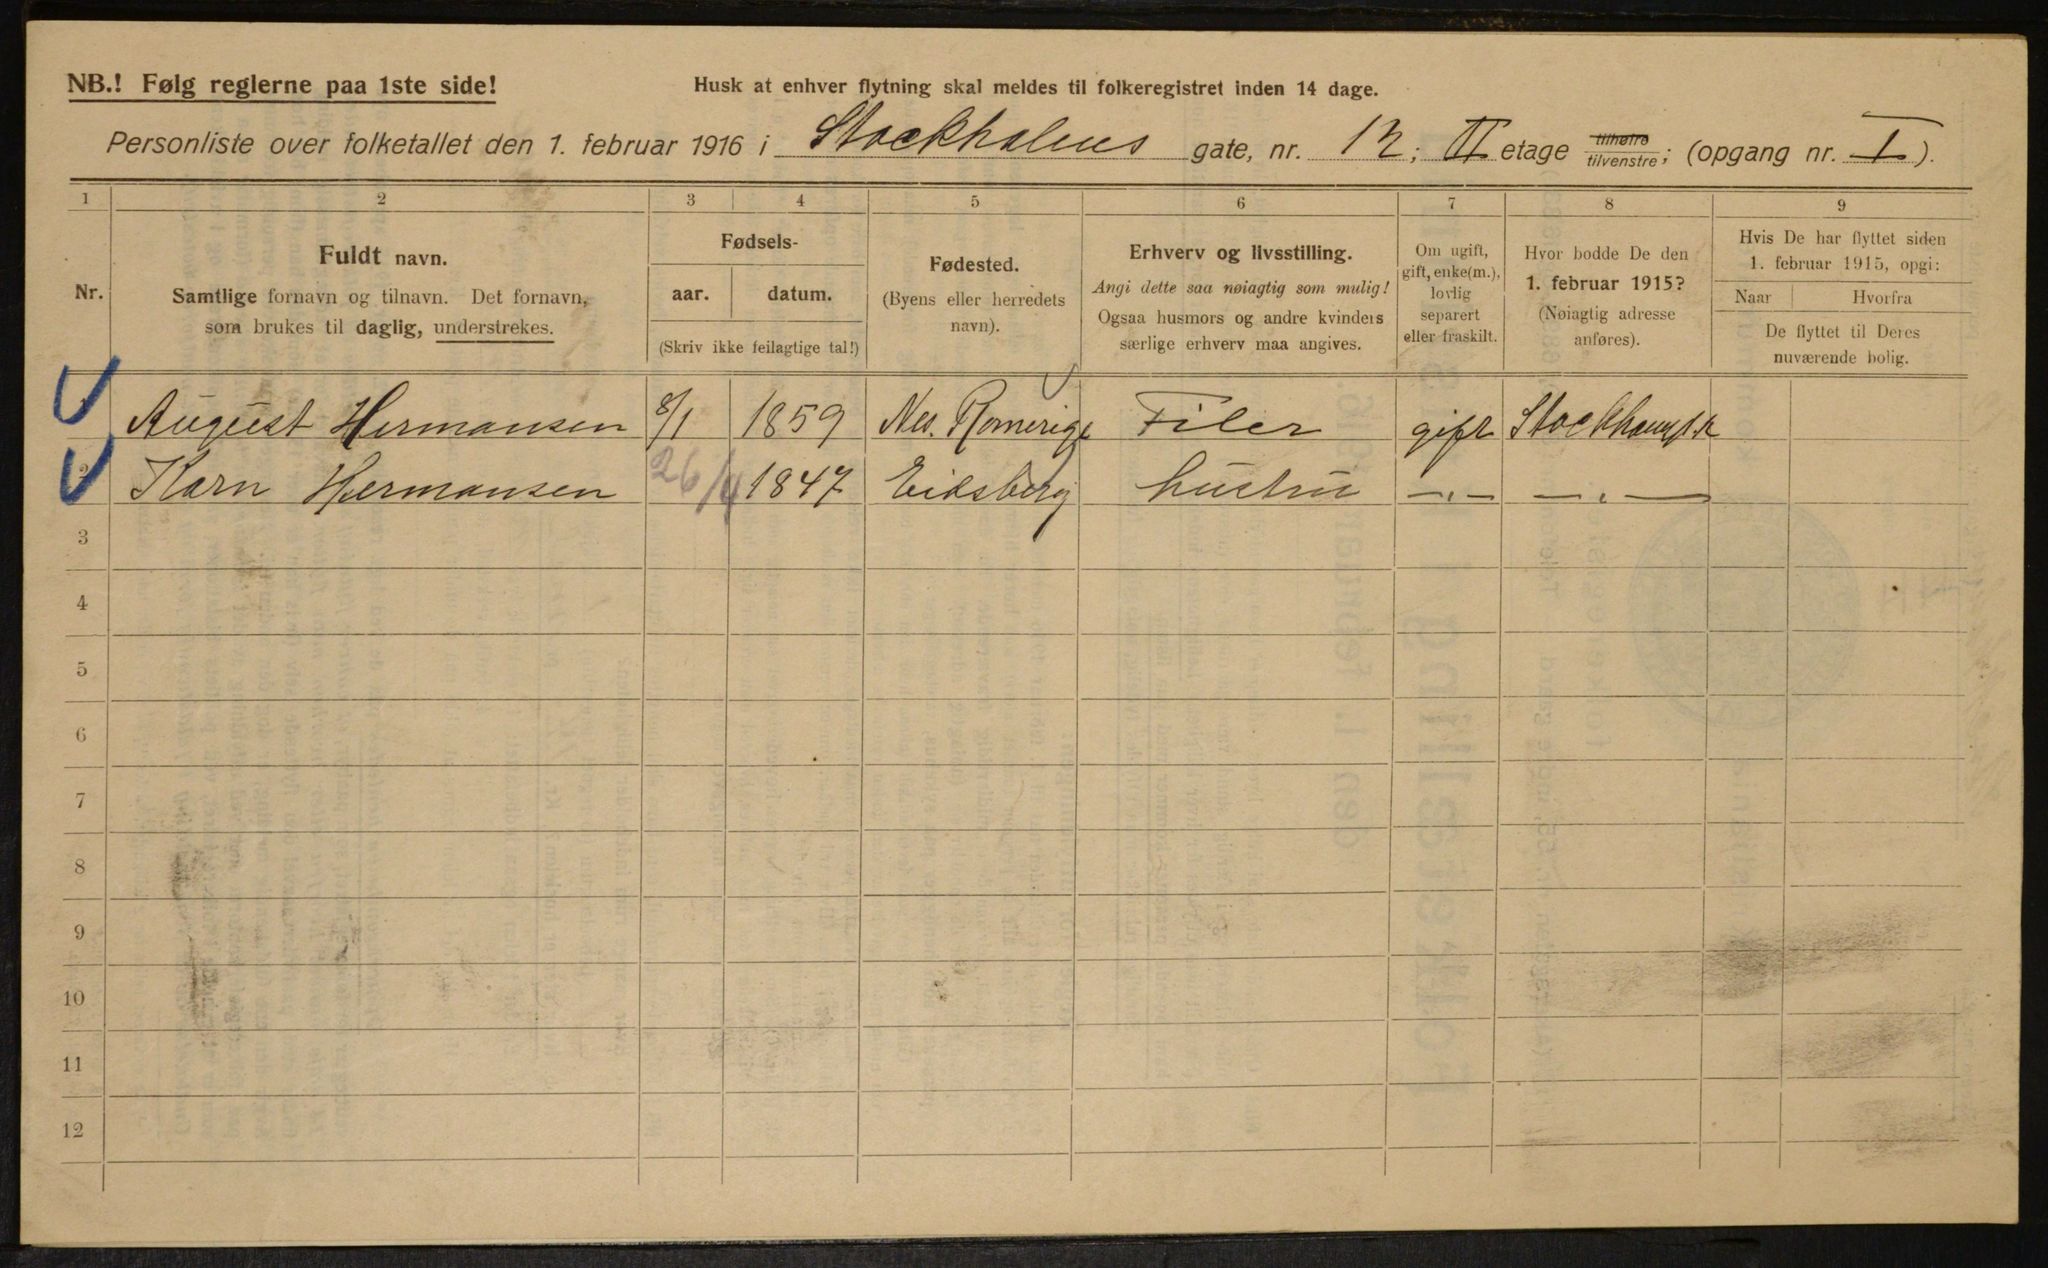 NB.! Følg reglerne paa 1ste side!
Husk at enhver flytning skal meldes til folkeregistret inden 14 dage.
Personliste over folketallet den 1. februar 1916 i Stockholms gate, nr. 12; II etage tilhøire tilvenstre; (opgang nr. I).
1 2 3 4 5 6 7 8 9
Nr.
Fuldt navn.
Samtlige fornavn og tilnavn. Det fornavn,
som brukes til daglig, understrekes.
Fødsels-
aar. datum.
(Skriv ikke feilagtige tal!)
Fødested.
(Byens eller herredets
navn).
Erhverv og livsstilling.
Angi dette saa nøiagtig som mulig!
Ogsaa husmors og andre kvinders
særlige erhverv maa angives.
Om ugift,
gift, enke(m.),
lovlig
separert
eller fraskilt.
Hvor bodde De den
1. februar 1915?
(Nøiagtig adresse
anføres).
Hvis De har flyttet siden
1. februar 1915, opgi:
Naar Hvorfra
De flyttet til Deres
nuværende bolig.
August Hermansen 8/1 1859 Nes. Romerige Filer gift
2 Karn Hermansen 26/4 1847 Eidsberg hustru —"— —"—
3
4
5
6
7
8
9
10
11
12